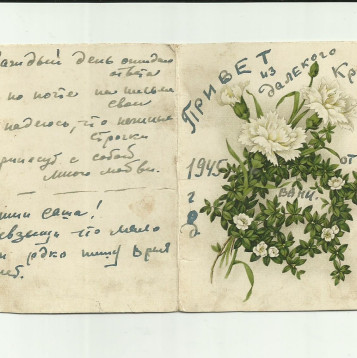 каждый день ожидаю
ответа
по почте на письма
свои
надеюсь, что
строчки
принесут с собой
много любви.
Саша!
что мало
и редко пишу
ПРИВЕТ
ИЗ
ДАЛЕКОГО
Кр
1945
г
от
Вани.